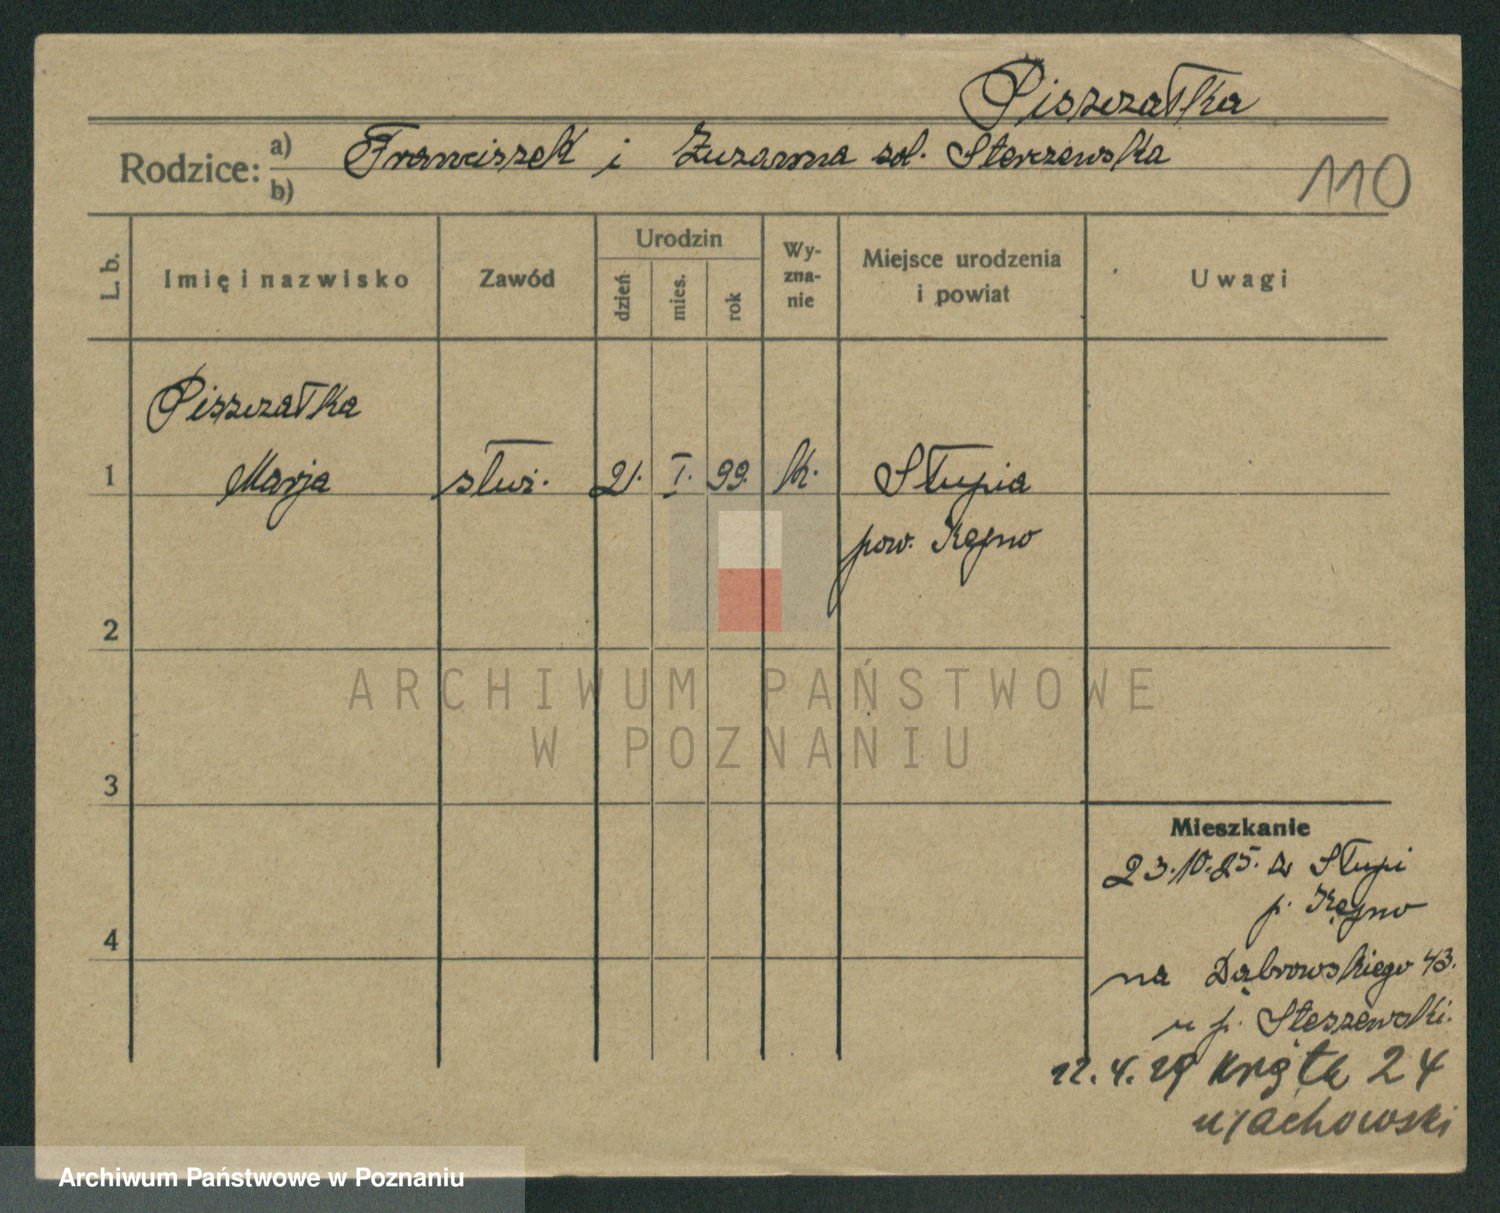 Piszczałka
Rodzice: a) Franciszek i Zuzanna
b)
110
L. b. Imię i nazwisko Zawód Urodzin dzień mies. rok Wy-zna-nie Miejsce urodzenia i powiat Uwagi
Piszczałka
1 Marja służ. 21. I. 99. k. Słupia
pow. Kępno
2
ARCHIWUM PAŃSTWOWE
W POZNANIU
3
Mieszkanie
23.10.25. z Słupi
p. Kępno
4
na Dąbrowskiego 43.
u p. Stęszewski.
12.4.29 Kręta 24
Archiwum Państwowe w Poznaniu